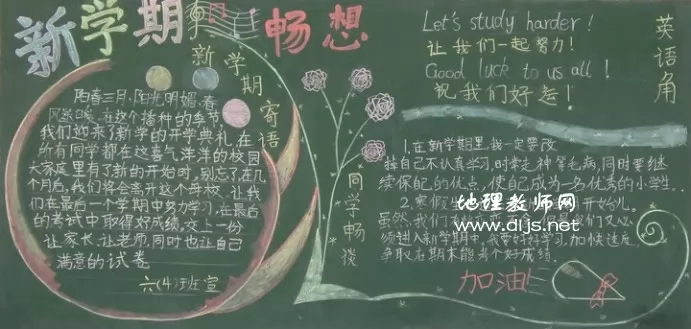 新学期
畅想
新学期寄语
阳春三月,阳光明媚,春
风,在这个播种的季节,
我们迎来了新学的开学典礼,在
所有同学都在这喜气洋洋的校园
大家庭里有了新的开始时,别忘了,在几
个月后,我们将会离开这个母校,让我
们在最后一个学期中努力学习,在最后
的考试中取得好成绩,交上一份
让家长,让老师,同时也让自己
满意的试卷
六(4)班宣
同学畅谈
Let's study harder!
让我们一起努力!
Good luck to us all!
祝我们好运!
英语角
1.在新学期里,我一定要改
我自己不认真学习,时常走神等毛病,同时要继
续保的优点,使自己成为一名优秀的小学生..
2.寒假 开始儿。
虽然,我们 们又必
须进入新学期中,我要好好学习,加快速度,
争取在期末能考个好成绩.
加油
地理教师网
www.dljs.net